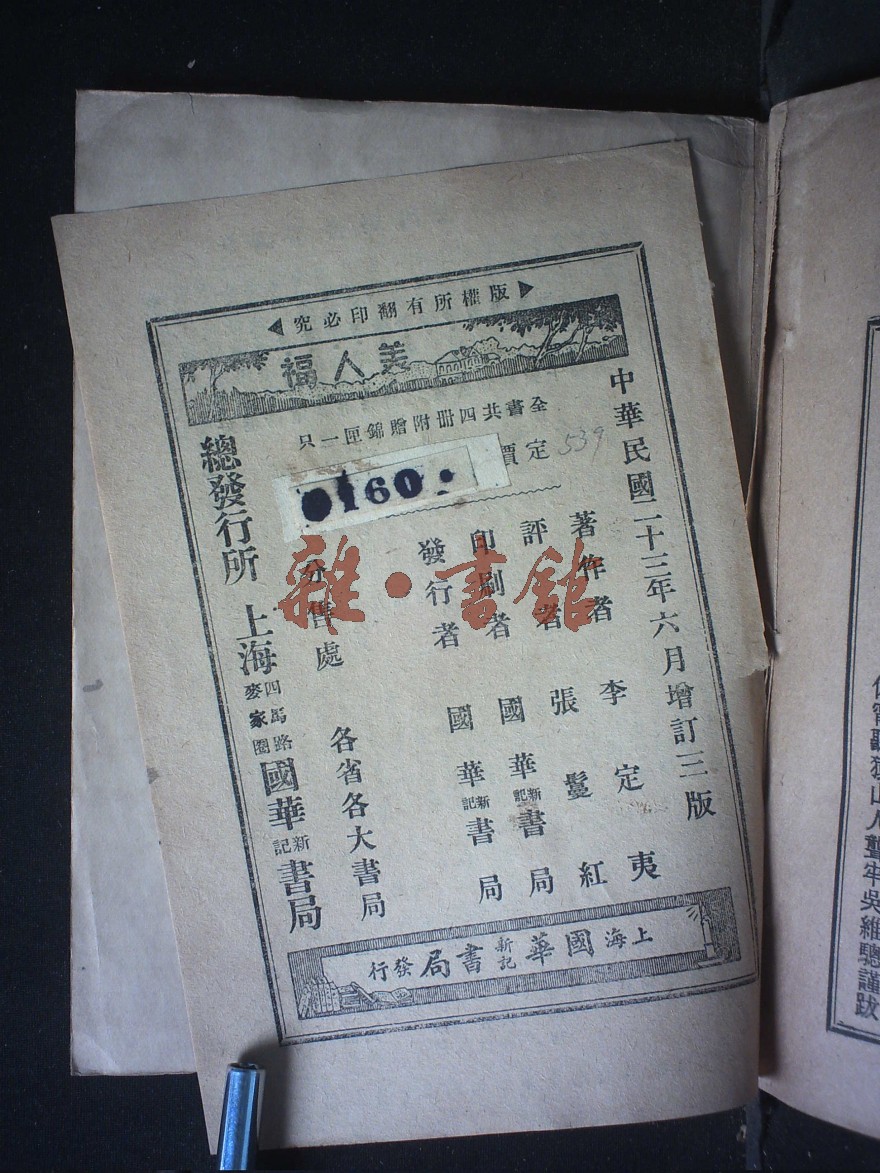 版權所有翻印必究
美人福
中華民國二十三年六月增訂三版
全書共四册附贈錦匣一只
定價
539
160
著作者 李定夷
評者 張鬘紅
印刷者 國華新記書局
發行者 國華新記書局
分售處 各省各大書局
總發行所 上海四馬路麥家圈國華新記書局
上海國華新記書局發行
雜·書館
山人龔牢吳維驄謹跋